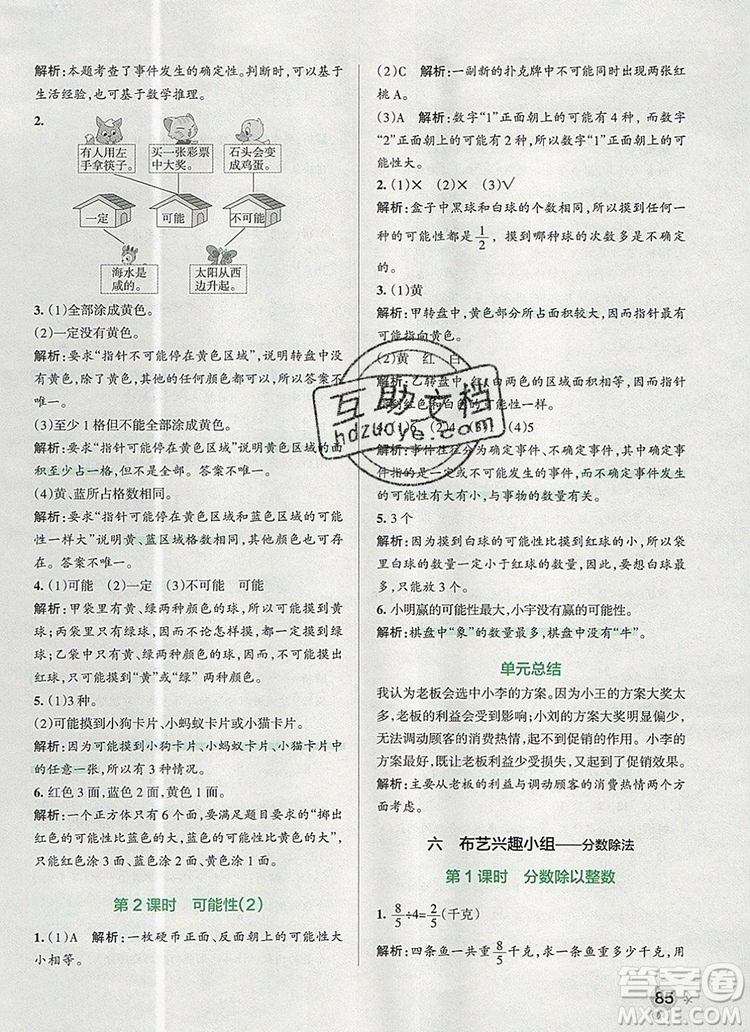 解析:本题考查了事件发生的确定性。判断时,可以基于
生活经验,也可基于数学推理。
2.
有人用左
手拿筷子。
买一张彩票
中大奖。
石头会变
成鸡蛋。
一定
可能
不可能
海水是
咸的。
太阳从西
边升起。
3. (1)全部涂成黄色。
(2)一定没有黄色。
解析:要求“指针不可能停在黄色区域”,说明转盘中没有黄
色,除了黄色,其他的任何颜色都可以有。答案不唯一。
(3)至少1格但不能全部涂成黄色。
解析:要求“指针可能停在黄色区域”,说明黄色区域的面
积至少占一格,但不能占全部。答案不唯一。
(4)黄、蓝所占格数相同。
解析:要求“指针停在黄色区域和蓝色区域的可能
性一样大”说明黄、蓝区域格数相同,其他颜色可以
有。答案不唯一。
4. (1)可能 (2)一定 (3)不可能 可能
解析:甲袋里有黄、绿两种颜色的球,可能摸到黄
球;乙袋中只有黄球,所以一定摸到黄球;丙袋中有
红、绿两种颜色的球,无论怎样摸都不可能摸到黄
球,只可能摸到“黄”以外的“红”或“绿”两种颜色。
5. (1)3种。
(2)可能摸到小狗卡片、小蚂蚁卡片或小猫卡片。
解析:因为可能摸到小狗卡片、小蚂蚁卡片、小猫卡片中
的任意一张,所以有3种情况。
6. 红色3面,蓝色2面,黄色1面。
解析:一个正方体共有6个面,要满足题目要求的“掷出
红色的可能性比蓝色的大,蓝色的可能性比黄色的
大”,只能是红色涂3面、蓝色涂2面、黄色涂1面。
第2课时 可能性(2)
1. (1)A 解析:一枚硬币正面、反面朝上的可能性大
小相等。
(2)C 解析:一副新的扑克牌中不可能同时出现两张红
桃A。
(3)A 解析:数字“1”正面朝上的可能有4种,而数字
“2”正面朝上的可能有2种,所以数字“1”正面朝上的可
能性大。
2. (1)× (2)× (3)√
解析:盒子中黑球和白球的个数相同,所以摸到任何一
种球的可能性都是1/2,摸到哪一种球的次数多是不确
定的。
3. (1)黄
解析:甲转盘中,黄色部分所占面积较大,因此指针最有
可能指向黄色。
(2)黄 红 白
解析:乙转盘中,黄、红、白两色的区域面积相等,所以指
(4)5
解析:事件往往分为确定事件、不确定事件,其中确定
事件指的是一定和不可能事件,而不确定事件发生
的可能性有大有小,与事物的数量有关。
5. 3个
解析:因为摸到白球的可能性比摸到红球的大,所以
袋里白球的数量一定小于红球的数量,因此白球的数
量少于4个。
6. 小明赢的可能性最大,小宇没有赢的可能性。
解析:棋盘中“象”的数量最多,且棋盘中没有“牛”。
单元总结
我认为老板会选中小李的方案。因为小王的方案大奖太
多,老板的利益会受到影响;小刘的方案大奖数偏少,
无法调动顾客的消费热情,起不到促销的作用。小李的
方案最好,既让老板利益少受损失,又能达到促销效果。
解析:主要从老板的利益与调动顾客的消费热情两方
面考虑。
六 布艺兴趣小组——分数除法
第1课时 分数除以整数
1. 8/5÷4=2/5(千克)
解析:四条鱼一共重8/5千克,求一条鱼重多少千克,用
85
互助文档
hdzuoye.com
答案圈
MXQE.COM